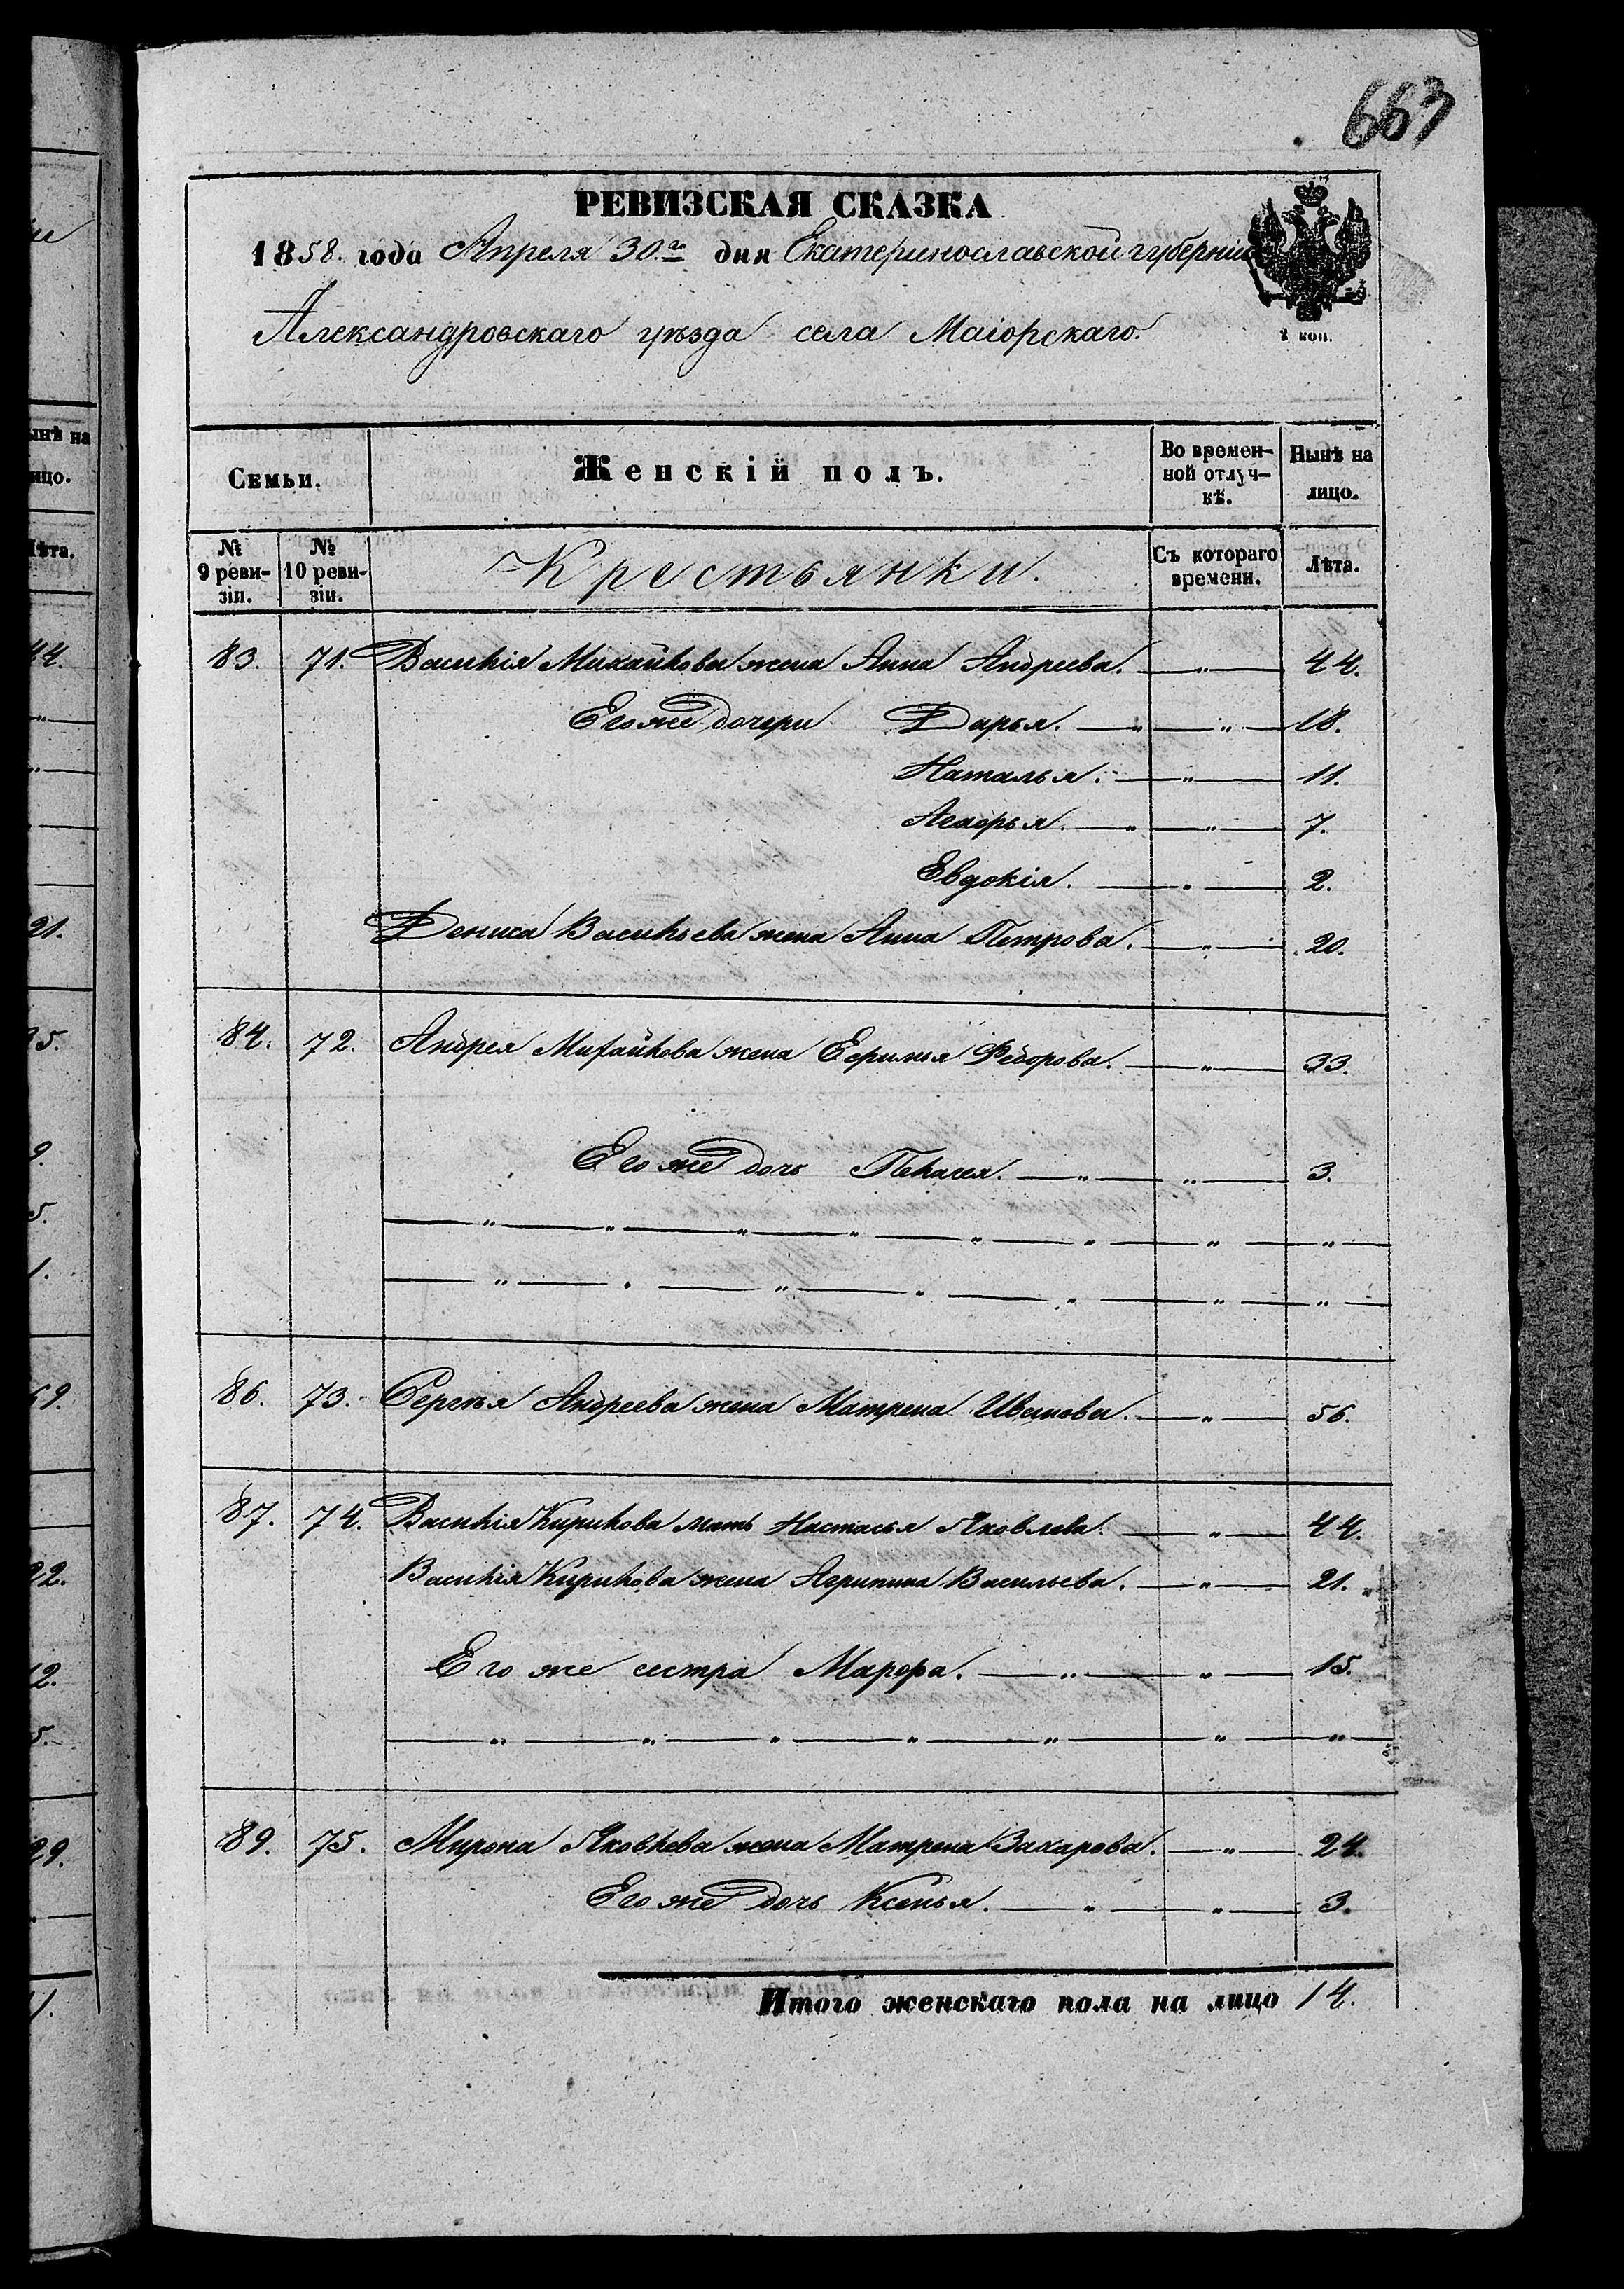 663
РЕВИЗСКАЯ СКАЗКА
1858. года Апреля 30.го дня Екатеринославской губерніи
Александровскаго уѣзда села Маіорскаго.
2 коп.
Семьи. Женскій полъ. Во времен-ной отлуч-кѣ. Нынѣ на лицо.
№ 9 реви-зіи. № 10 реви-зіи. Крестьянки. Съ котораго времени. Лѣта.
83. 71. Василія Михайлова жена Анна Андреева. — " — 44.
Его же дочери Дарья. — " — " — 18.
Наталья. — " — 11.
Агафья. — " — " — 7.
Евдокія. — " — 2.
Дениса Васильева жена Анна Петрова. — " — 20.
84. 72. Андрея Михайлова жена Ефимья Федорова. — " — 33.
Его же дочь Пелагея. — " — " — 3.
— " — " — " — " — " — " — " — " —
— " — " — " — " — " — " — " —
86. 73. Сергѣя Андреева жена Матрена Иванова. — " — 56.
87. 74. Василія Кирилова мать Настасья Яковлева. — " — 44.
Василія Кирилова жена Агрипина Васильева. — " — 21.
Его же сестра Марфа. — " — " — 15.
— " — " — " — " — " — " — " —
89. 75. Мирона Яковлева жена Матрена Захарова. — " — 24.
Его же дочь Ксенья. — " — " — 3.
Итого женскаго пола на лицо 14.